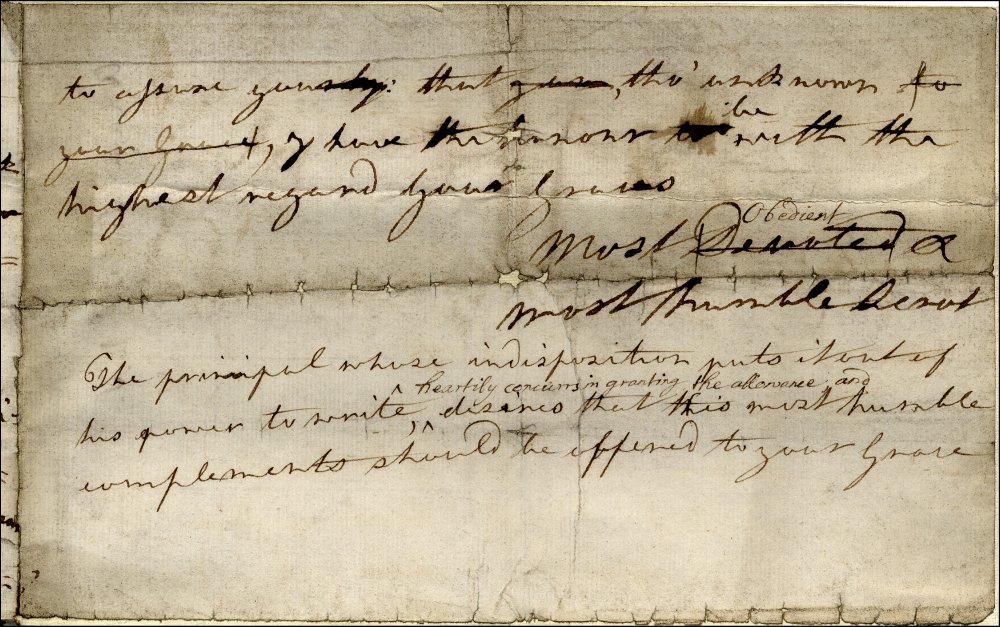 to assure you that you, tho' unknown to
your Grace, I have the honour to be with the
highest regard Your Graces
Obedient
Most Devoted &
most humble Servt
The prinipal whose indisposition puts it out of
heartily concurrs in granting the allowance and
his power to write, desires that this most humble
complements should be offered to your Grace